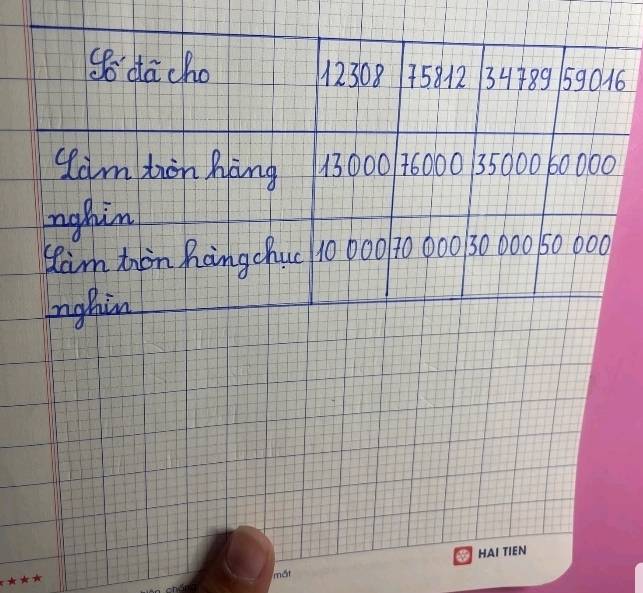 Số đã cho 12308 75812 34789 59016
Làm tròn hàng 13000 76000 35000 60 000
nghìn
Làm tròn hàng chục 10 000 70 000 30 000 50 000
nghìn
HAI TIEN
mắt